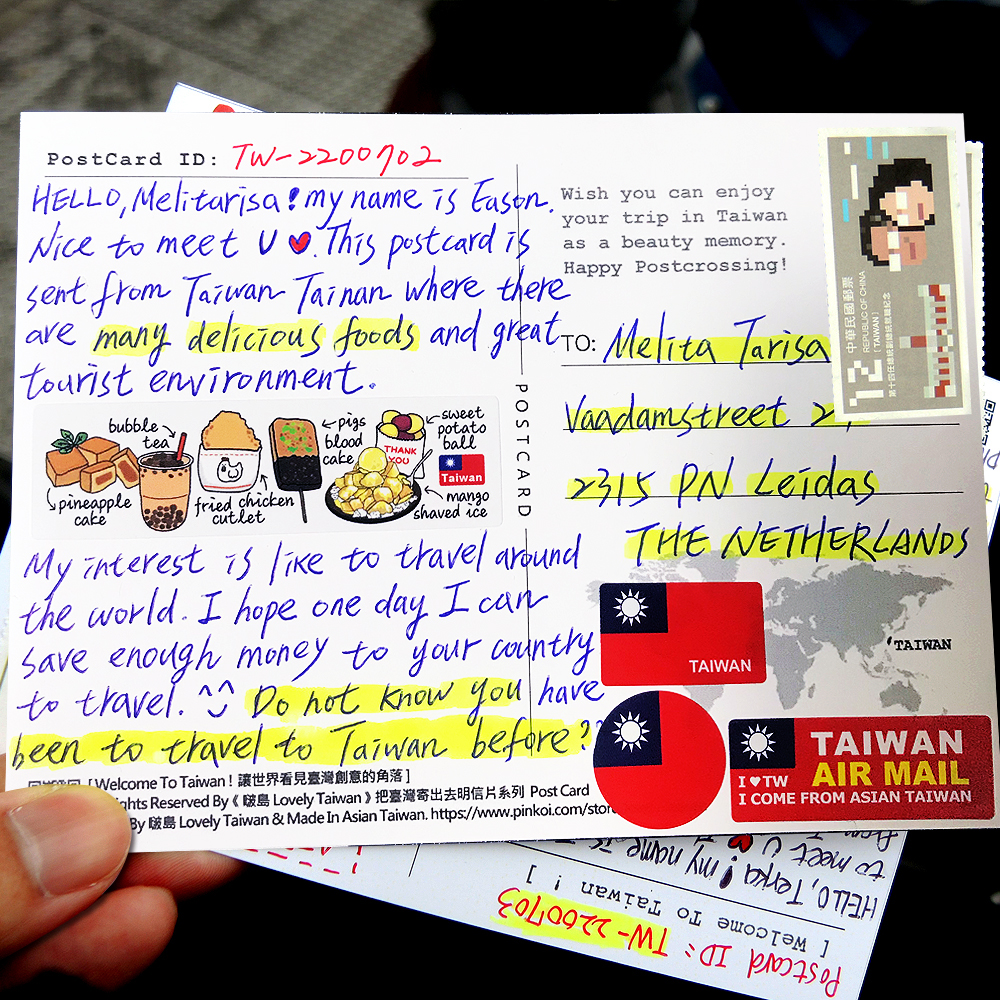 PostCard ID: TW-2200702
HELLO, Melitarisa! my name is Eason.
Nice to meet U ♥. This postcard is
sent from Taiwan Tainan where there
are many delicious foods and great
tourist environment.
bubble
tea
pigs
blood
cake
sweet
potato
ball
THANK
YOU
Taiwan
pineapple
cake
fried chicken
cutlet
mango
shaved ice
My interest is like to travel around
the world. I hope one day I can
save enough money to your country
to travel. ^^ Do not know you have
been to travel to Taiwan before?
[ Welcome To Taiwan ! 讓世界看見臺灣創意的角落 ]
ghts Reserved By《 啵島 Lovely Taiwan 》把臺灣寄出去明信片系列 Post Card
By 啵島 Lovely Taiwan & Made In Asian Taiwan. https://www.pinkoi.com/stor
POSTCARD
Wish you can enjoy
your trip in Taiwan
as a beauty memory.
Happy Postcrossing!
TO: Melita Tarisa
Vaadamstreet 2,
2315 PN Leidas
THE NETHERLANDS
12
中華民國郵票
REPUBLIC OF CHINA
[ TAIWAN ]
第十四任總統副總統就職紀念
TAIWAN
TAIWAN
TAIWAN
AIR MAIL
I ♥ TW
I COME FROM ASIAN TAIWAN
Postcard ID: TW-2200703
[ Welcome To Taiwan ! ]
HELLO, Terka! my name is
to meet U ♥